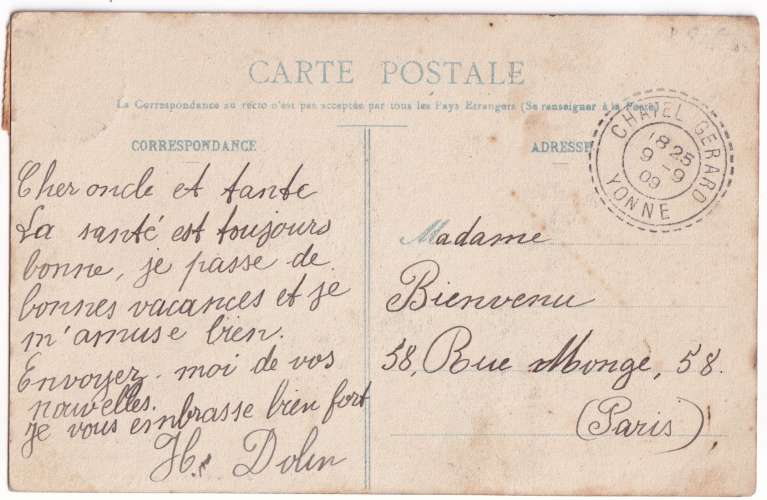 CARTE POSTALE
La Correspondance au recto n'est pas acceptée par tous les Pays Etrangers (Se renseigner à la Poste)
CORRESPONDANCE
Cher oncle et tante
La santé est toujours
bonne, je passe de
bonnes vacances et je
m'amuse bien.
Envoyez-moi de vos
nouvelles.
Je vous embrasse bien fort
H. Dolin
ADRESSE
CHATEL-GERARD
18 25
9 - 9
09
YONNE
Madame
Bienvenu
58, Rue Monge, 58.
(Paris)